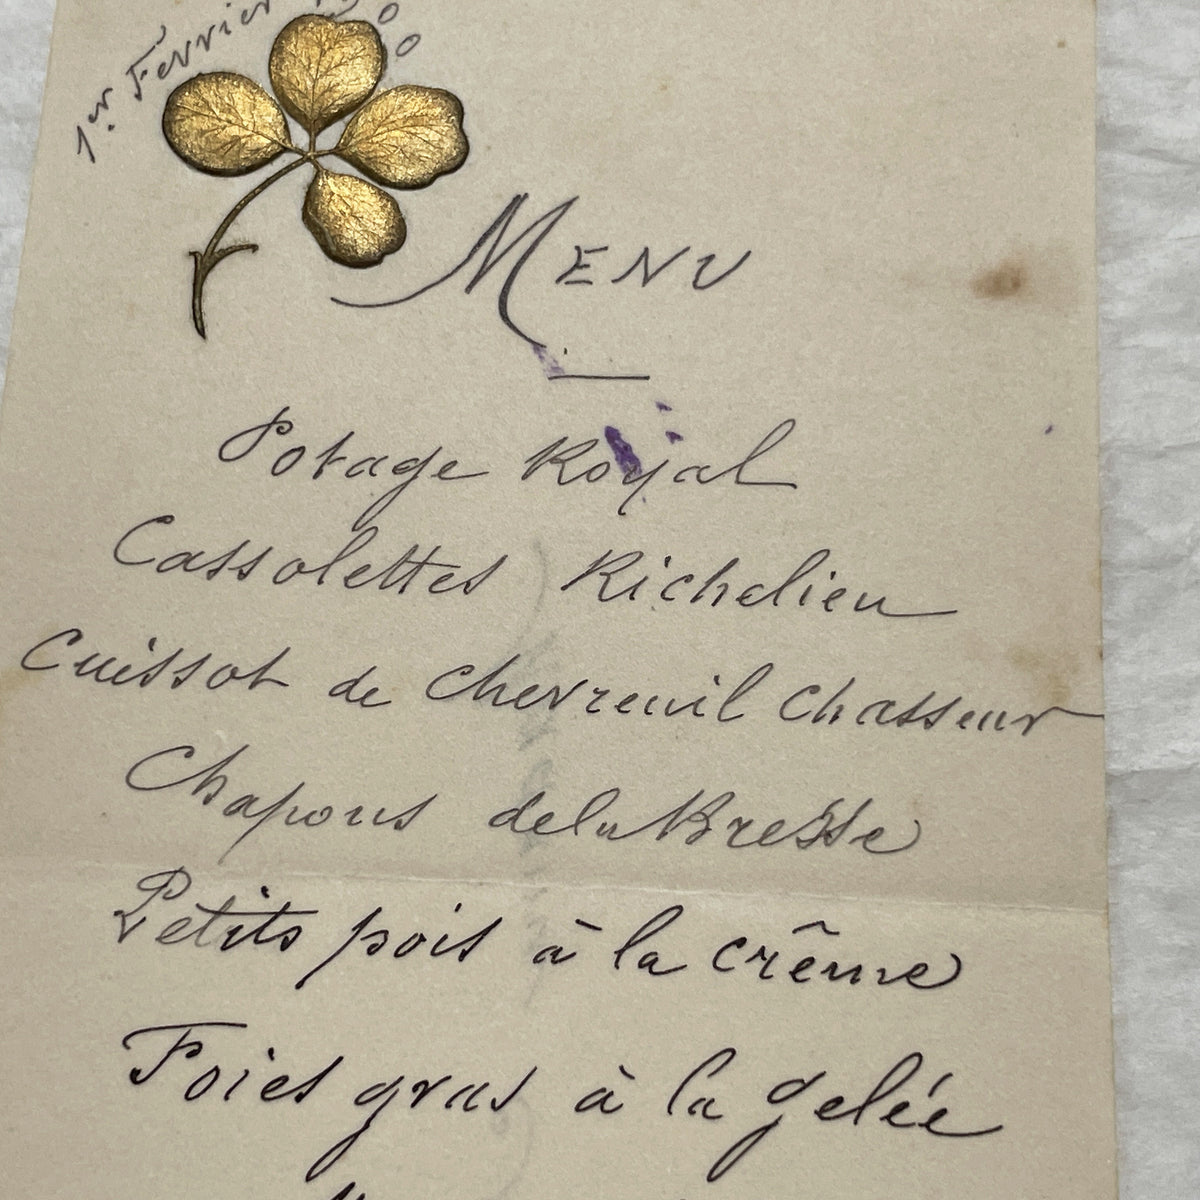 1er Février
MENU
Potage Royal
Cassolettes Richelieu
Cuissot de Chevreuil Chasseur
Chapons de la Bresse
Petits pois à la crême
Foies gras à la gelée